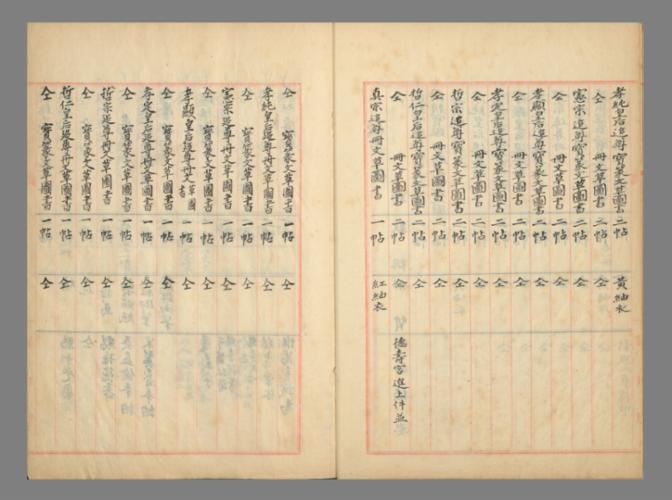 孝純皇后追尊寶篆文草圖書 二帖 黃紬衣
仝 冊文草圖書 二帖 仝
憲宗追尊寶篆文草圖書 二帖 仝
仝 冊文草圖書 二帖 仝
孝顯皇后追尊寶篆文草圖書 二帖 仝
仝 冊文草圖書 二帖 仝
孝定皇后追尊寶篆文草圖書 二帖 仝
仝 冊文草圖書 二帖 仝
哲宗追尊寶篆文草圖書 二帖 仝
仝 冊文草圖書 二帖 仝
哲仁皇后追尊寶篆文草圖書 二帖 仝
仝 冊文草圖書 二帖 仝 德壽宮進上件並
真宗追尊冊文草圖書 一帖 紅紬衣
仝 寶篆文草圖書 一帖 仝
孝純皇后追尊冊文草圖書 一帖 仝
仝 寶篆文草圖書 一帖 仝
憲宗追尊冊文草圖書 一帖 仝
仝 寶篆文草圖書 一帖 仝
孝顯皇后追尊冊文草圖書 一帖 仝
仝 寶篆文草圖書 一帖 仝
孝定皇后追尊冊文草圖書 一帖 仝
仝 寶篆文草圖書 一帖 仝
哲宗追尊冊文草圖書 一帖 仝
仝 寶篆文草圖書 一帖 仝
哲仁皇后追尊冊文草圖書 一帖 仝
仝 寶篆文草圖書 一帖 仝